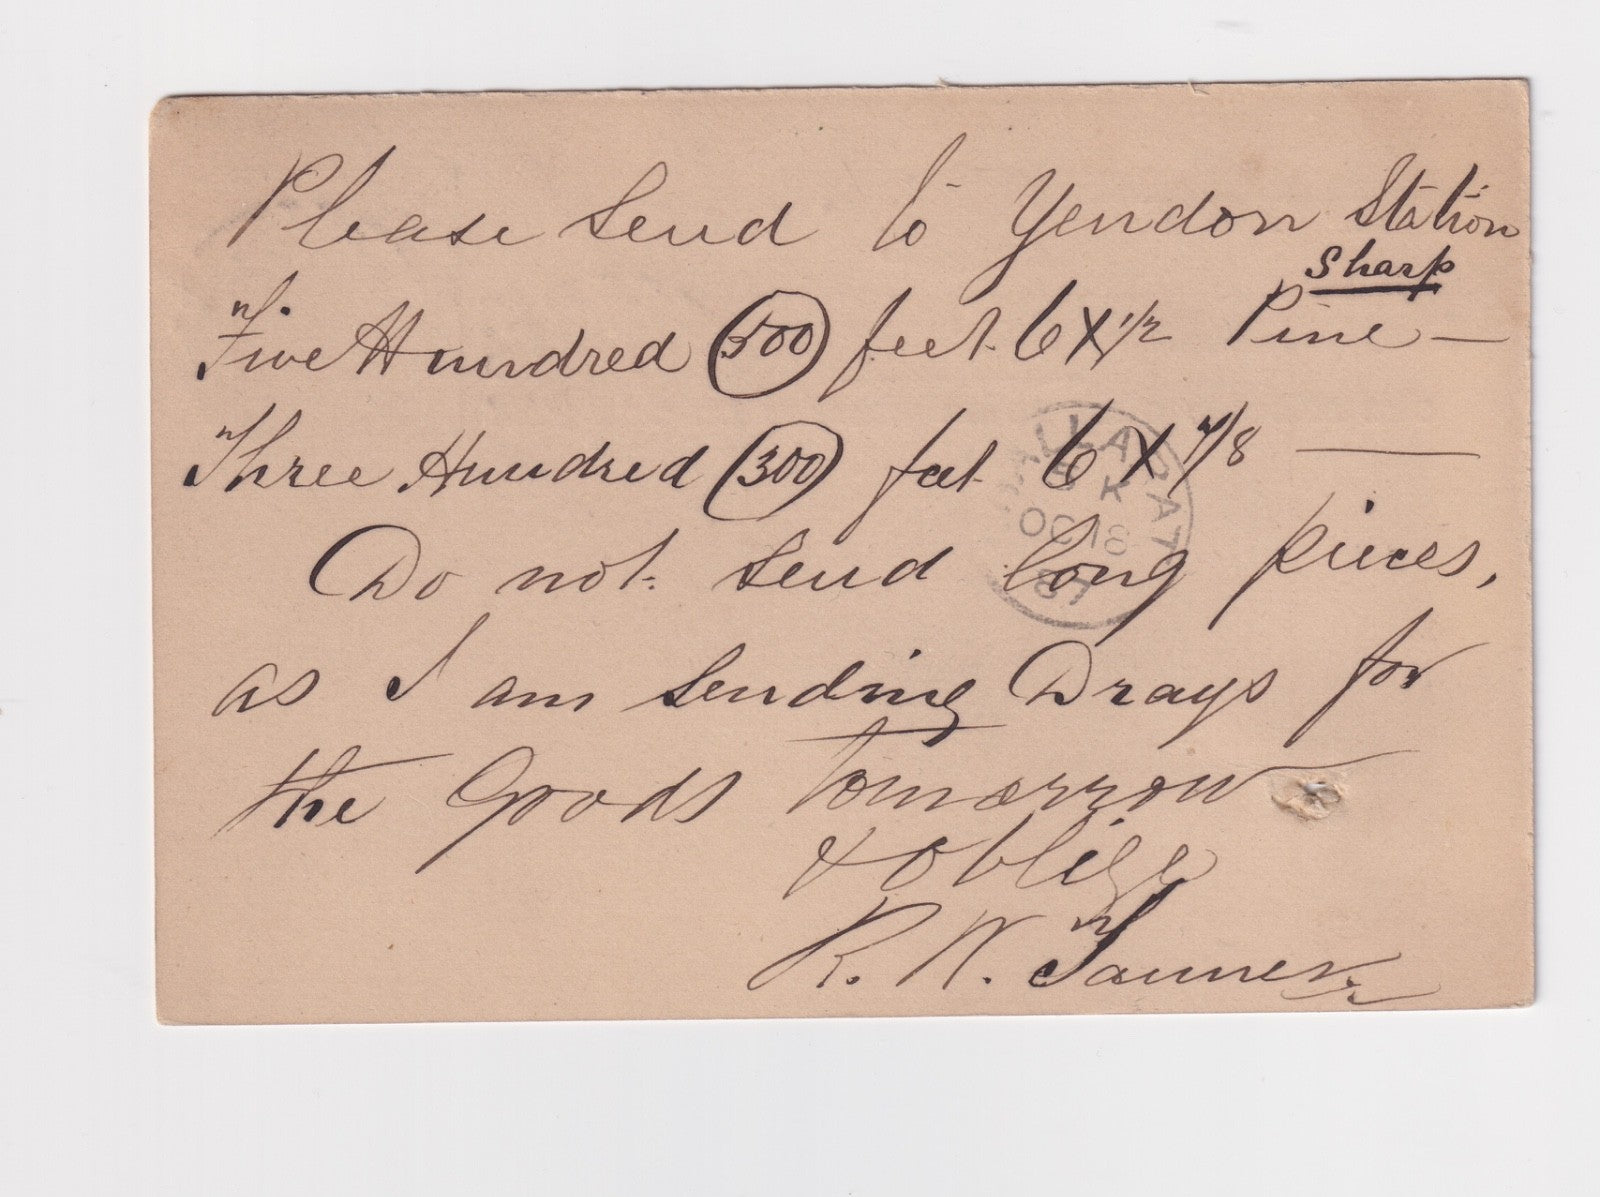 Please Send to Yendon Station
Sharp
Five Hundred (500) feet 6 X 1/2 Pine —
Three Hundred (300) feet 6 X 7/8 —
Do not Send long pieces,
as I am sending Drays for
the Goods tomorrow
& oblige
R. W. Tanner
BALLARAT
K
OC 18
87